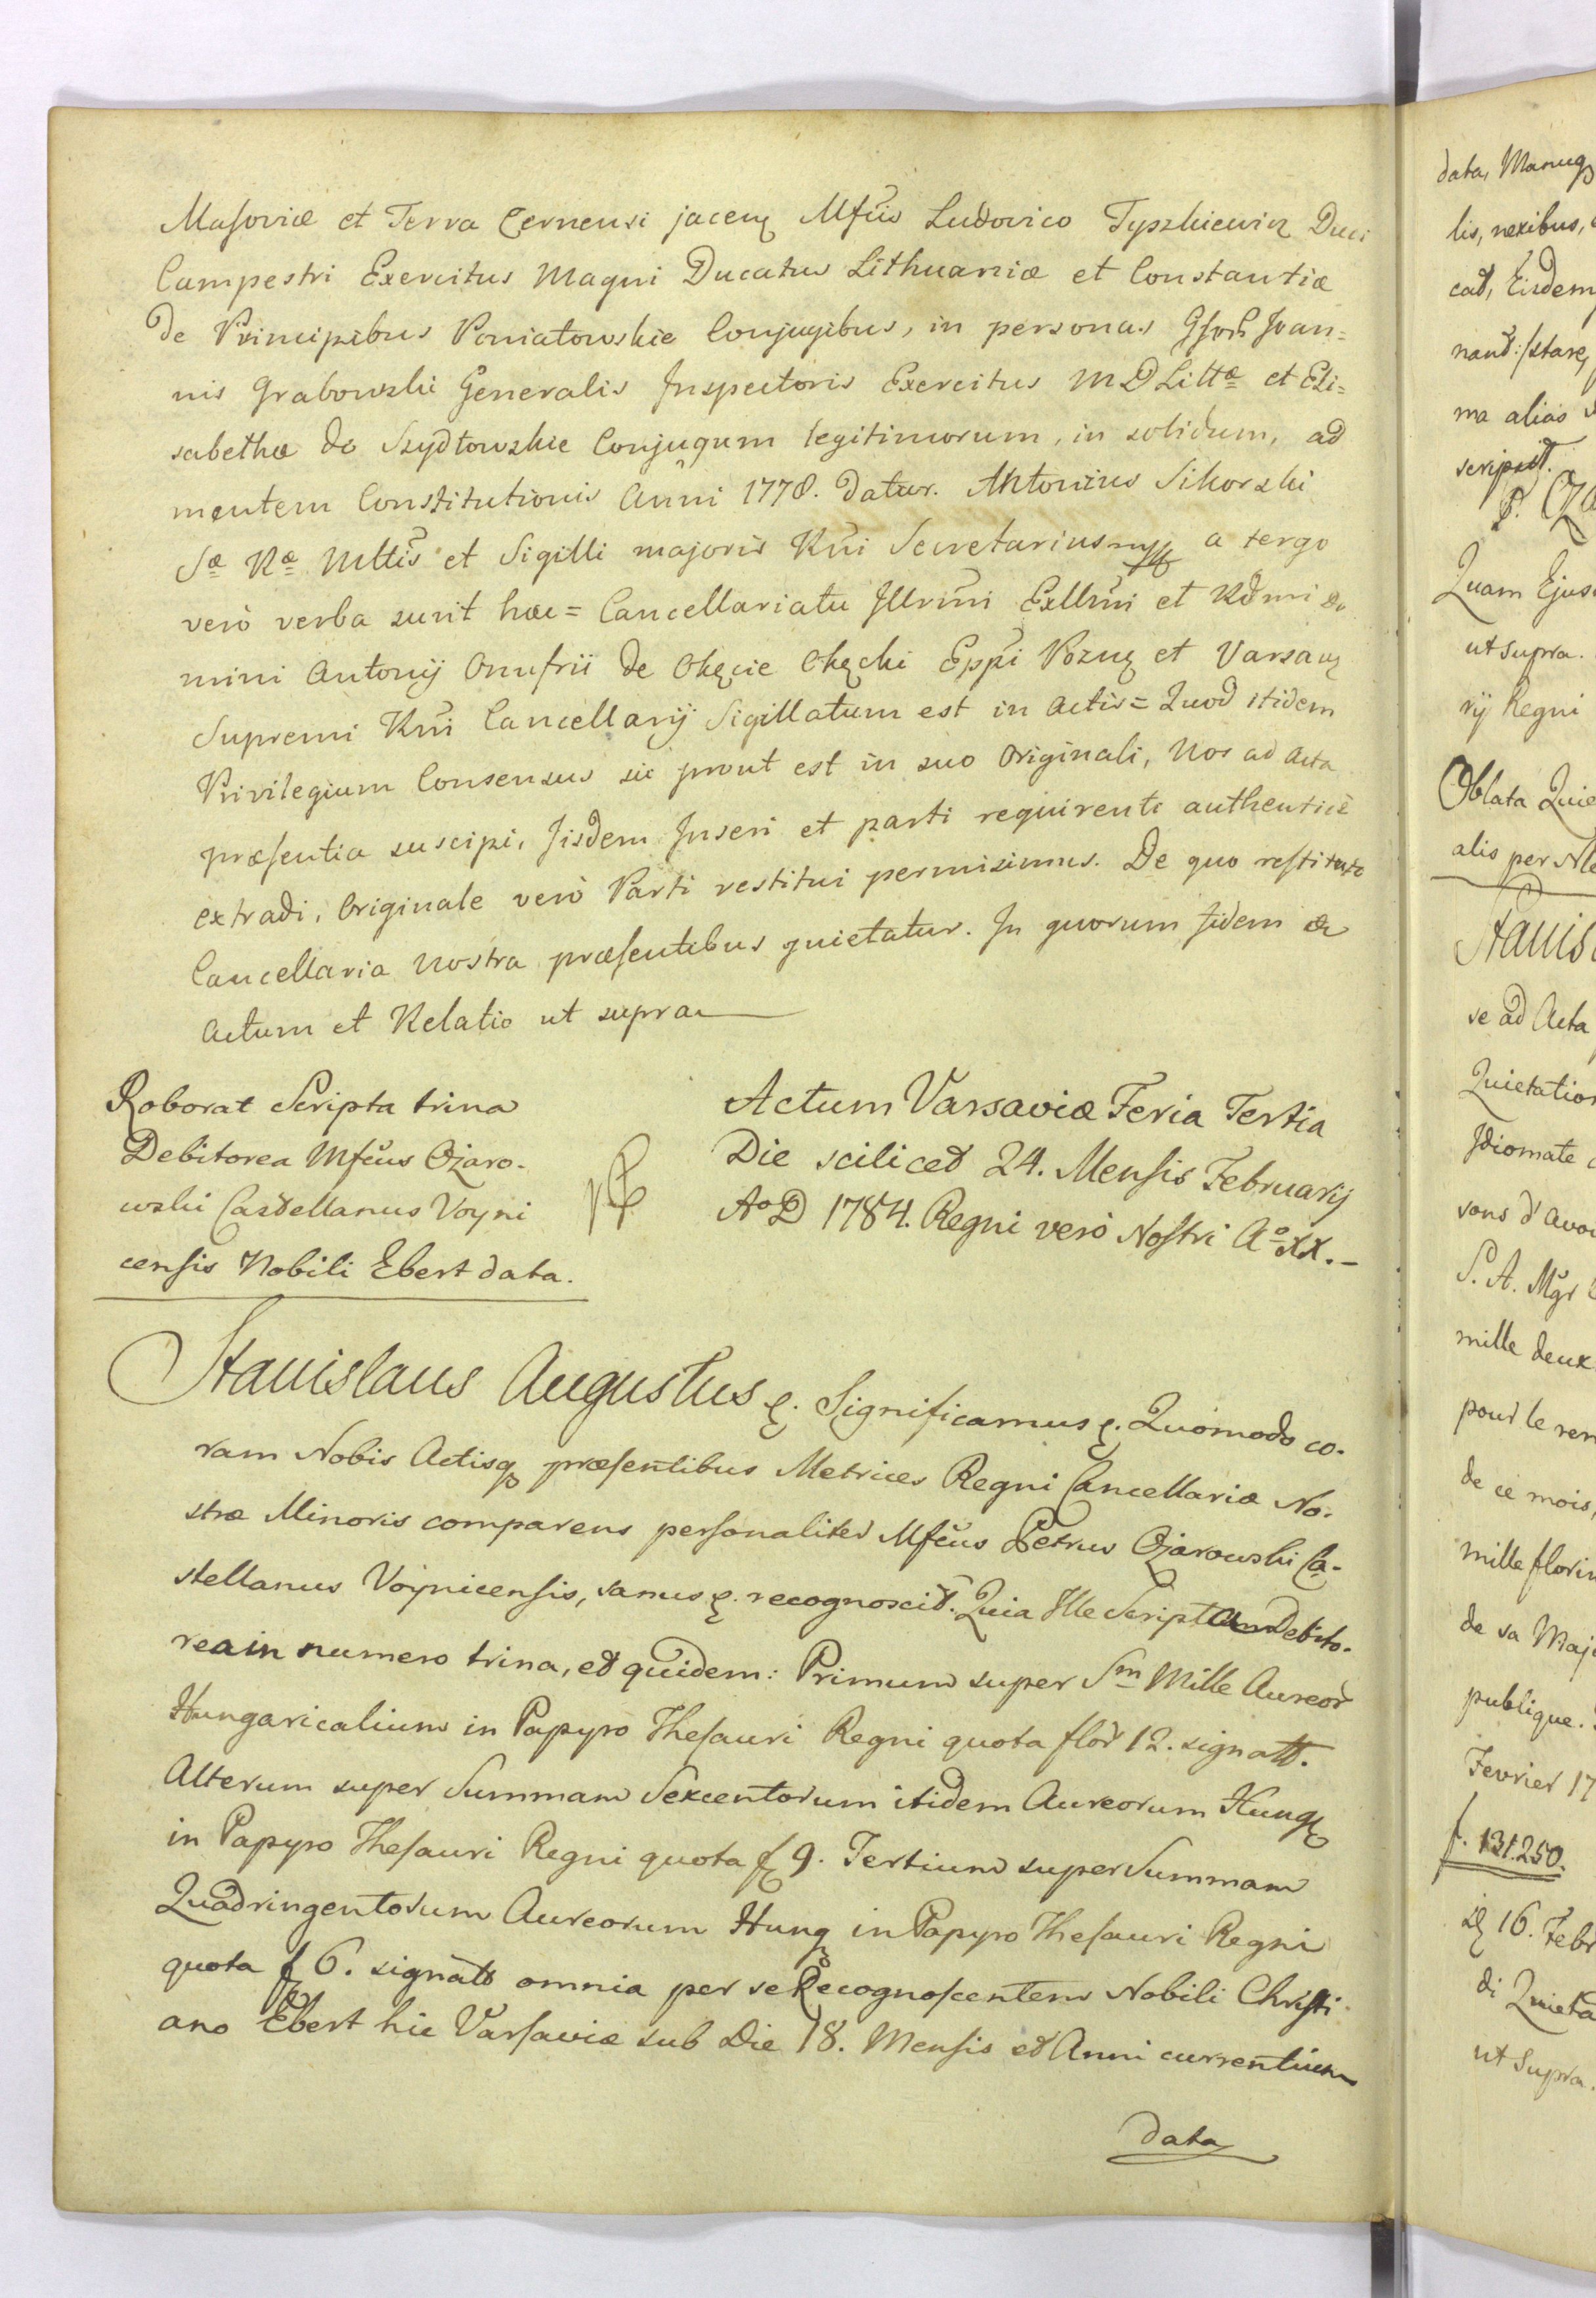 Masoviæ et Terra Cernensi jaceñ Mfcis Ludovico Tyszkiewicz Duci
Campestri Exercitus Magni Ducatus Lithuaniæ et Constantiæ
de Principibus Poniatowskie Conjugibus, in personas Joan=
nis Grabowski Generalis Inspectoris Exercitus M D Littæ et Eli=
sabethæ de Szydłowskie Conjugum legitimorum, in solidum, ad
mentem Constitutionis Anni 1778. datur. Antonius Sikorski
Sæ Ræ Mttis et Sigilli majoris Rni Secretarius mpp a tergo
verò verba sunt hæc = Cancellariatu Illrmi Exllmi et Rdmi Do
mini Antonij Onufrii de Okęcie Okęcki Eppi Pozn et Varsav
Supremi Rni Cancellarij Sigillatum est in Actis = Quod itidem
Privilegium Consensus sic prout est in suo Originali, Nos ad Acta
præsentia suscipi, Iisdem Inseri et parti requirenti authenticè
extradi, Originale verò Parti restitui permisimus. De quo restituto
Cancellaria Nostra præsentibus quietatur. In quorum fidem &
Actum et Relatio ut supra
Roborat Scripta trina
Debitorea Mfcus Ożaro-
wski Castellanus Voyni
censis Nobili Ebert data.
Actum Varsaviæ Feria Tertia
Die scilicet 24. Mensis Februarij
Ao D 1784. Regni verò Nostri Ao XX.-
Stanislaus Augustus &. Significamus &. Quòmodo co-
ram Nobis Actisq præsentibus Metrices Regni Cancellariæ No-
stræ Minoris comparens personaliter Mfcus Petrus Ożarowski Ca-
stellanus Voynicensis, sanus &. recognoscit. Quia Ille Scripta Debito-
rea in numero trina, et quidem: Primum super Sm Mille Aureor
Hungaricalium in Papyro Thesauri Regni quota flor 12. signatt.
Alterum super Summam Sexcentorum itidem Aureorum Hung
in Papyro Thesauri Regni quota f 9. Tertium super Summam
Quadringentorum Aureorum Hung in Papyro Thesauri Regni
quota f 6. signatt omnia per se Recognoscentem Nobili Christi-
ano Ebert hic Varsaviæ sub Die 18. Mensis et Anni currentium
data
data, Manuq
lis, nexibus,
cat, Eisdem
nand:/stare,
ma alias
script.
Quam Ejus
ut supra.
rij Regni
Oblata Quie
alis per Ale
Stanis
se ad Acta
Quietation
Idiomate
sons d'avoi
S. A. Mgr
mille deux
pour le ren
de ce mois,
mille florin
de sa Maje
publique.
Fevrier 17
f. 131.250.
16. Febr
di Quieta
ut Supra.